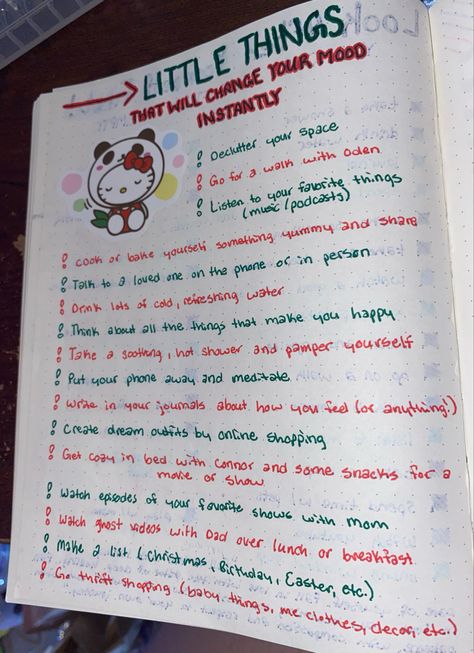 LITTLE THINGS
THAT WILL CHANGE YOUR MOOD
INSTANTLY
Declutter your space
Go for a walk with Oden
Listen to your favorite things
(music/podcasts)
Cook or bake yourself something yummy and share
Talk to a loved one on the phone or in person
Drink lots of cold, refreshing water
Think about all the things that make you happy
Take a soothing, hot shower and pamper yourself
Put your phone away and meditate
Write in your journals about how you feel (or anything!)
Create dream outfits by online shopping
Get cozy in bed with Connor and some snacks for a
movie or show
Watch episodes of your favorite shows with mom
Watch ghost videos with Dad over lunch or breakfast
Make a list (Christmas, Birthday, Easter, etc.)
Go thrift shopping (baby things, me clothes, decor, etc.)